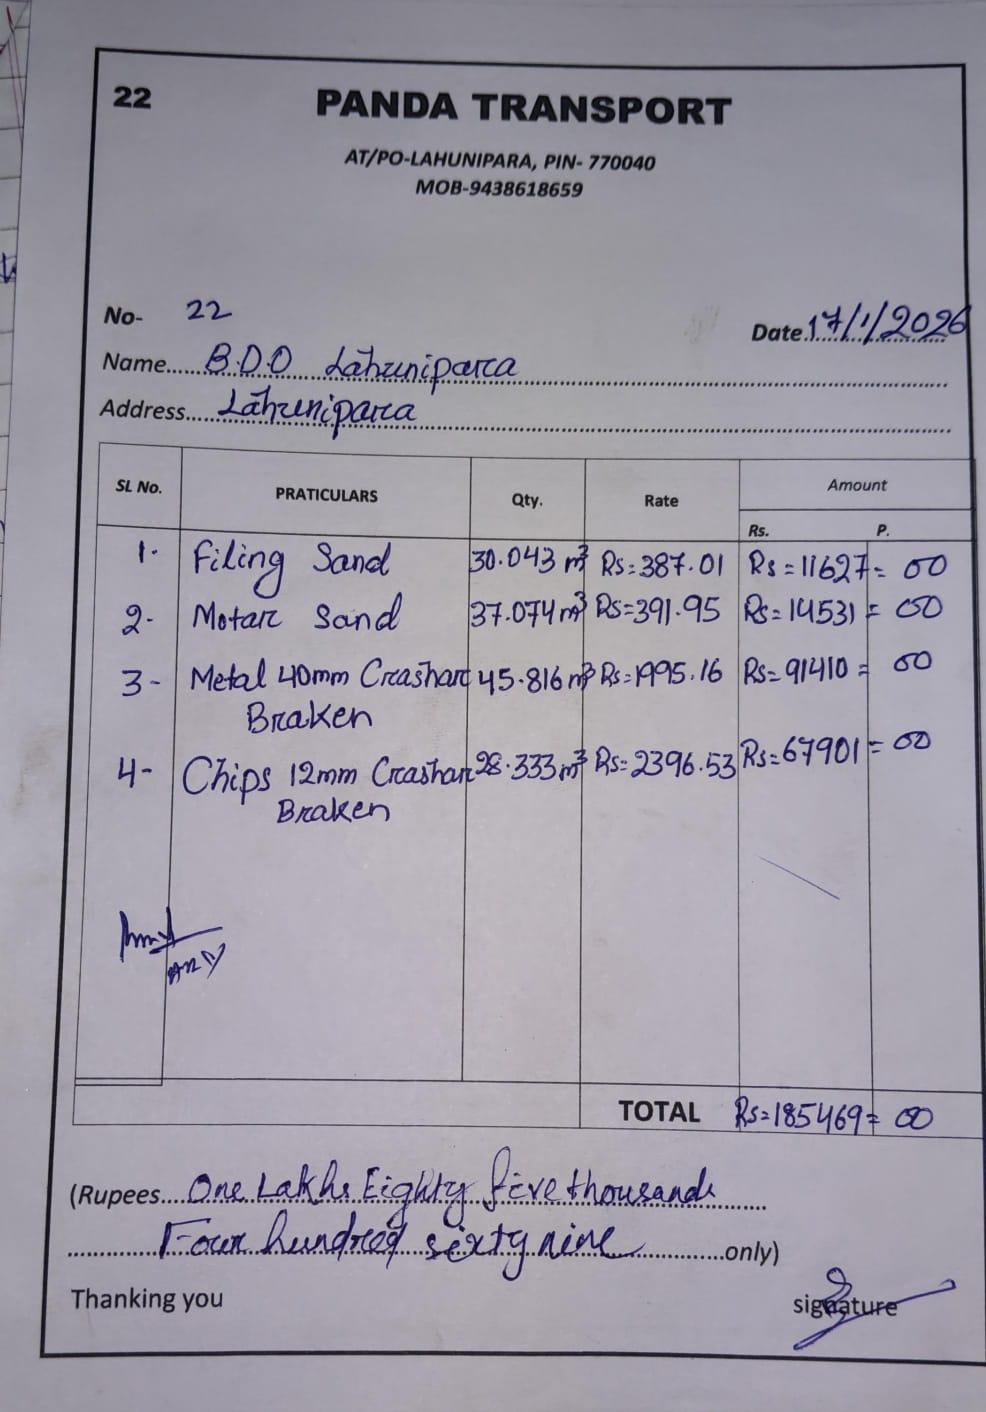 22
PANDA TRANSPORT
AT/PO-LAHUNIPARA, PIN- 770040
MOB-9438618659
No- 22
Date 17/1/2026
Name...... B.D.O Lahunipara
Address..... Lahunipara
SL No. PRATICULARS Qty. Rate Amount
Rs. P.
1. Filing Sand 30.043 m³ Rs=387.01 Rs=11627= 00
2- Motar Sand 37.074 m³ Rs=391.95 Rs=14531= 00
3- Metal 40mm Crashar 45.816 m³ Rs=1995.16 Rs=91410= 00
Braken
4- Chips 12mm Crashar 28.333 m³ Rs=2396.53 Rs=67901= 00
Braken
TOTAL Rs=185469= 00
(Rupees.... One Lakhs Eighty five thousands
Four hundred sixty nine ..........only)
Thanking you
signature